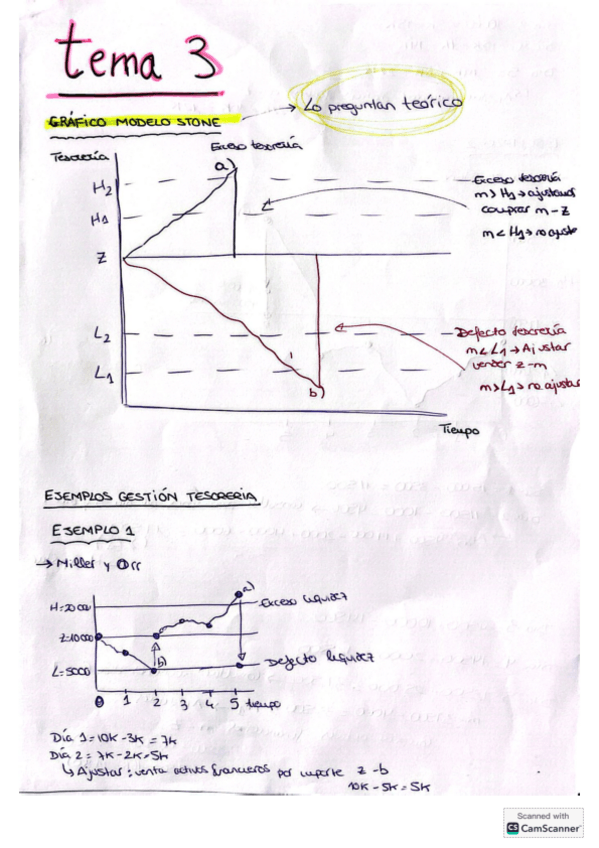 tema 3
GRÁFICO MODELO STONE
Lo preguntan teórico
Tesorería
Exceso tesorería
a)
H2
H1
Z
L2
L1
b)
Tiempo
Exceso tesorería
m > H1 → ajustamos
comprar m - Z
m < H1 → no ajuste
Defecto tesorería
m < L1 → Ajustar
vender z - m
m > L1 → no ajustar
EJEMPLOS GESTIÓN TESORERIA
EJEMPLO 1
→ Miller y Orr
H=20000
Z=10000
L=5000
a)
b)
Exceso liquidez
Defecto liquidez
0 1 2 3 4 5 tiempo
Día 1 = 10K - 3K = 7K
Día 2 = 7K - 2K = 5K
↳ Ajustar: venta activos financieros por importe z - b
10K - 5K = 5K
Scanned with
CS CamScanner